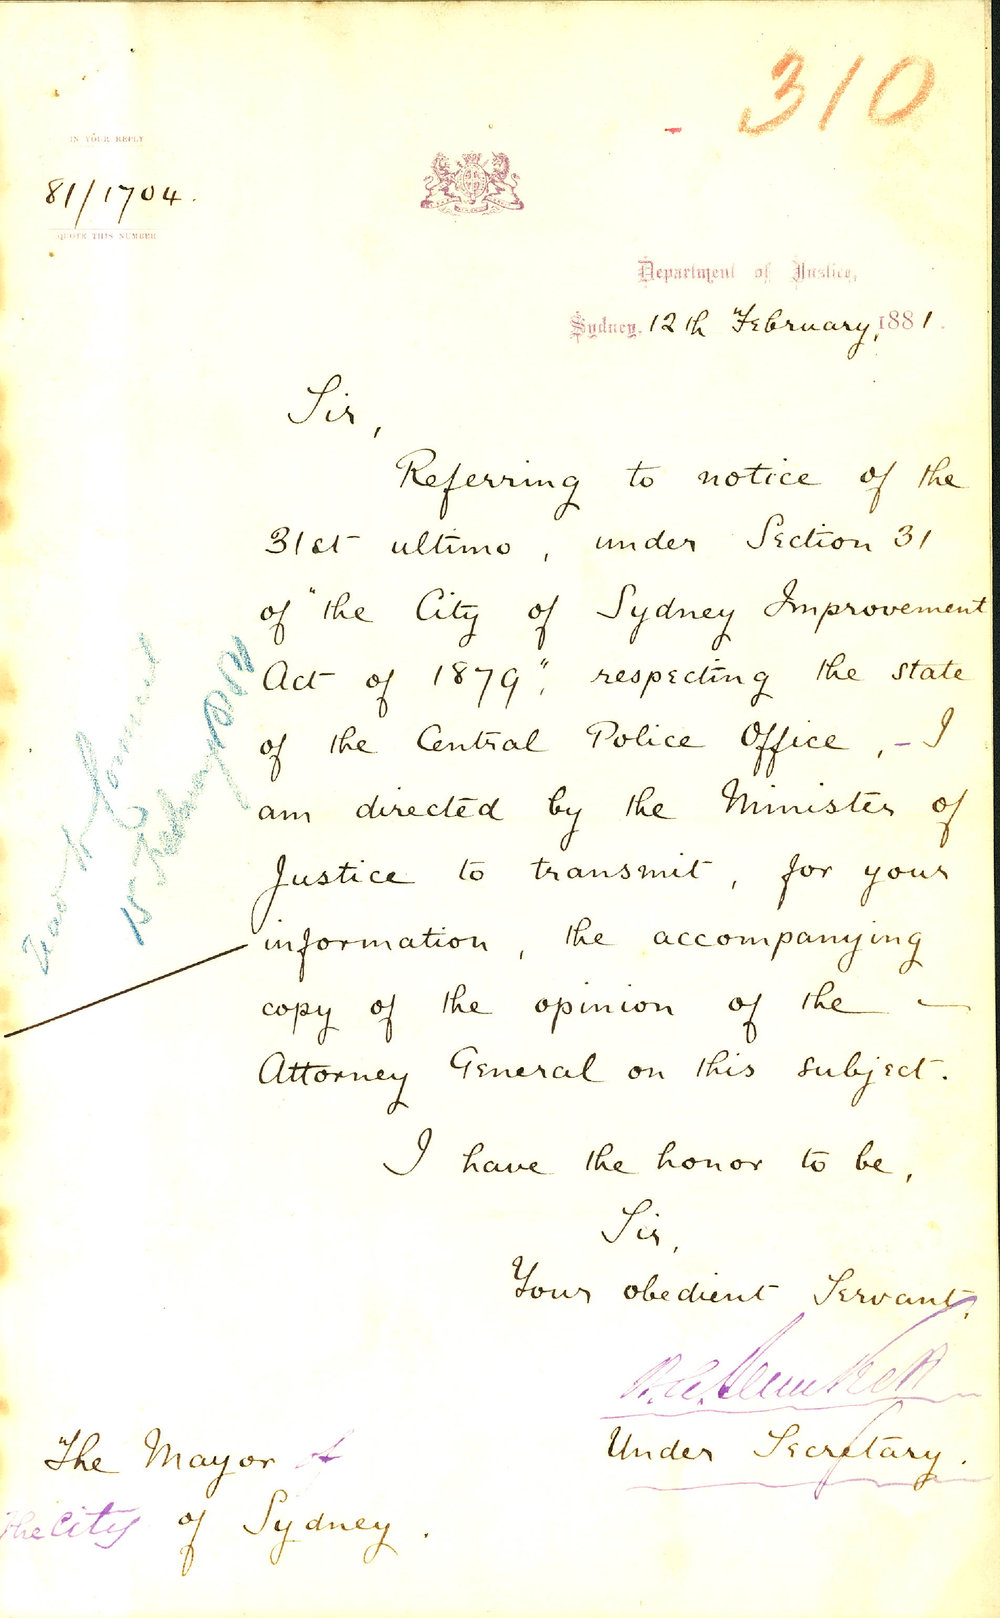 310
IN YOUR REPLY
81/1704.
QUOTE THIS NUMBER
Department of Justice,
Sydney, 12th February, 1881.
Sir,
Referring to notice of the
31st ultimo, under Section 31
of "the City of Sydney Improvement
Act of 1879", respecting the state
of the Central Police Office, - I
am directed by the Minister of
Justice to transmit, for your
information, the accompanying
copy of the opinion of the —
Attorney General on this subject.
I have the honor to be,
Sir,
Your obedient Servant,
Under Secretary.
The Mayor of
the City of Sydney.
15 February 1881